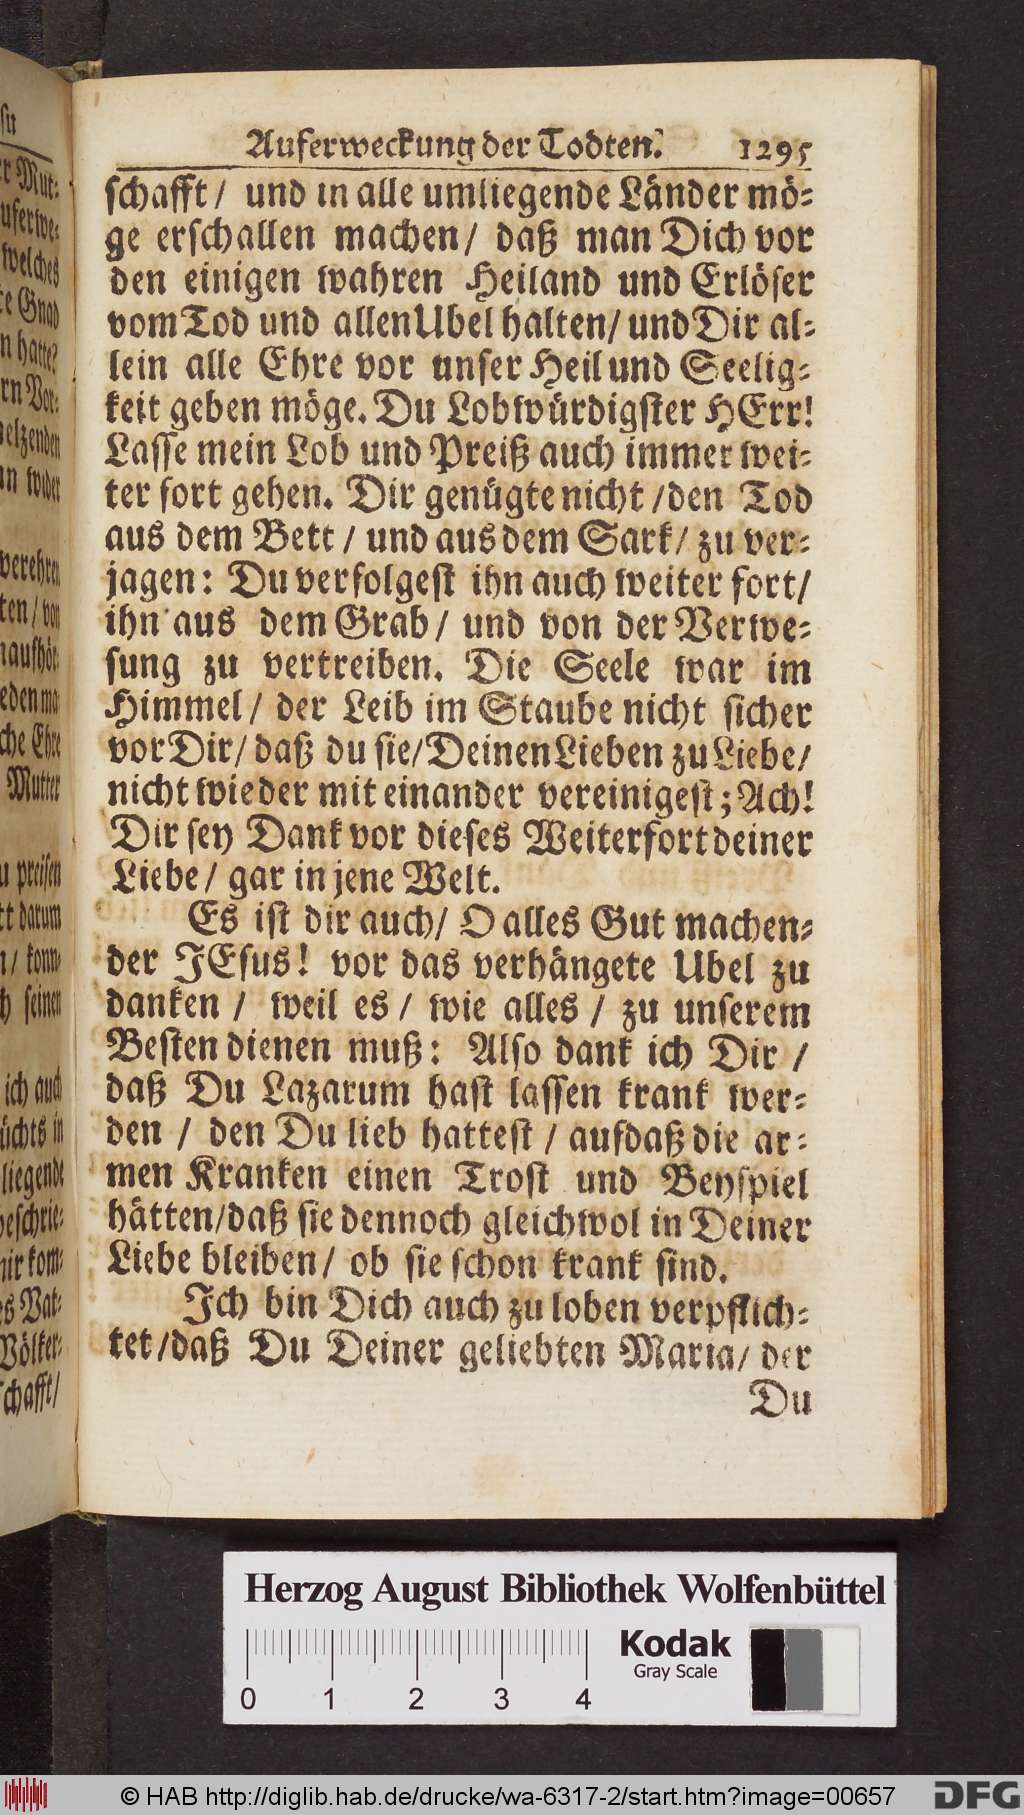 Auferweckung der Todten. 1295
schafft/ und in alle umliegende Länder mö-
ge erschallen machen/ daß man Dich vor
den einigen wahren Heiland und Erlöser
vom Tod und allen Ubel halten/ und Dir al-
lein alle Ehre vor unser Heil und Seelig-
keit geben möge. Du Lobwürdigster HErr!
Lasse mein Lob und Preiß auch immer wei-
ter fort gehen. Dir genügte nicht /den Tod
aus dem Bett / und aus dem Sark/ zu ver-
jagen: Du verfolgest ihn auch weiter fort/
ihn aus dem Grab/ und von der Verwe-
sung zu vertreiben. Die Seele war im
Himmel/ der Leib im Staube nicht sicher
vor Dir/ daß du sie/ Deinen Lieben zu Liebe/
nicht wieder mit einander vereinigest; Ach!
Dir sey Dank vor dieses Weiterfort deiner
Liebe/ gar in jene Welt.
Es ist dir auch/ O alles Gut machen-
der JEsus! vor das verhängete Ubel zu
danken / weil es / wie alles / zu unserem
Besten dienen muß: Also dank ich Dir /
daß Du Lazarum hast lassen krank wer-
den / den Du lieb hattest / aufdaß die ar-
men Kranken einen Trost und Beyspiel
hätten/daß sie dennoch gleichwol in Deiner
Liebe bleiben/ ob sie schon krank sind.
Ich bin Dich auch zu loben verpflich-
tet/daß Du Deiner geliebten Maria/ der
Du
Mut-
welches
Gnad
hatte?
Vor-
wider
verehren
ten/ von
che Ehre
Mutter
preisen
darum
konn-
seinen
ich auch
in
liegende
beschrie-
kom-
Vat-
Völker-
schafft/
Herzog August Bibliothek Wolfenbüttel
0 1 2 3 4
Kodak
Gray Scale
© HAB http://diglib.hab.de/drucke/wa-6317-2/start.htm?image=00657
DFG